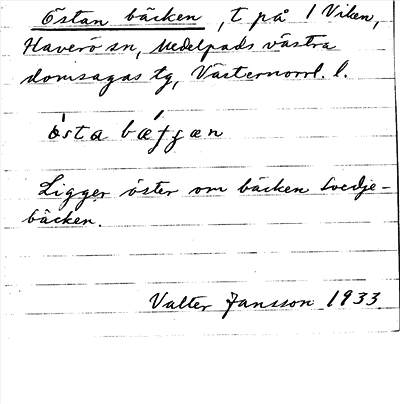 Östan bäcken, t på 1 Viken,
Haverö sn, Medelpads västra
domsagas tg, Västernorrl. l.
ò̀sta bǽfgæn
Ligger öster om bäcken Svedje-
bäcken.
Valter Jansson 1933